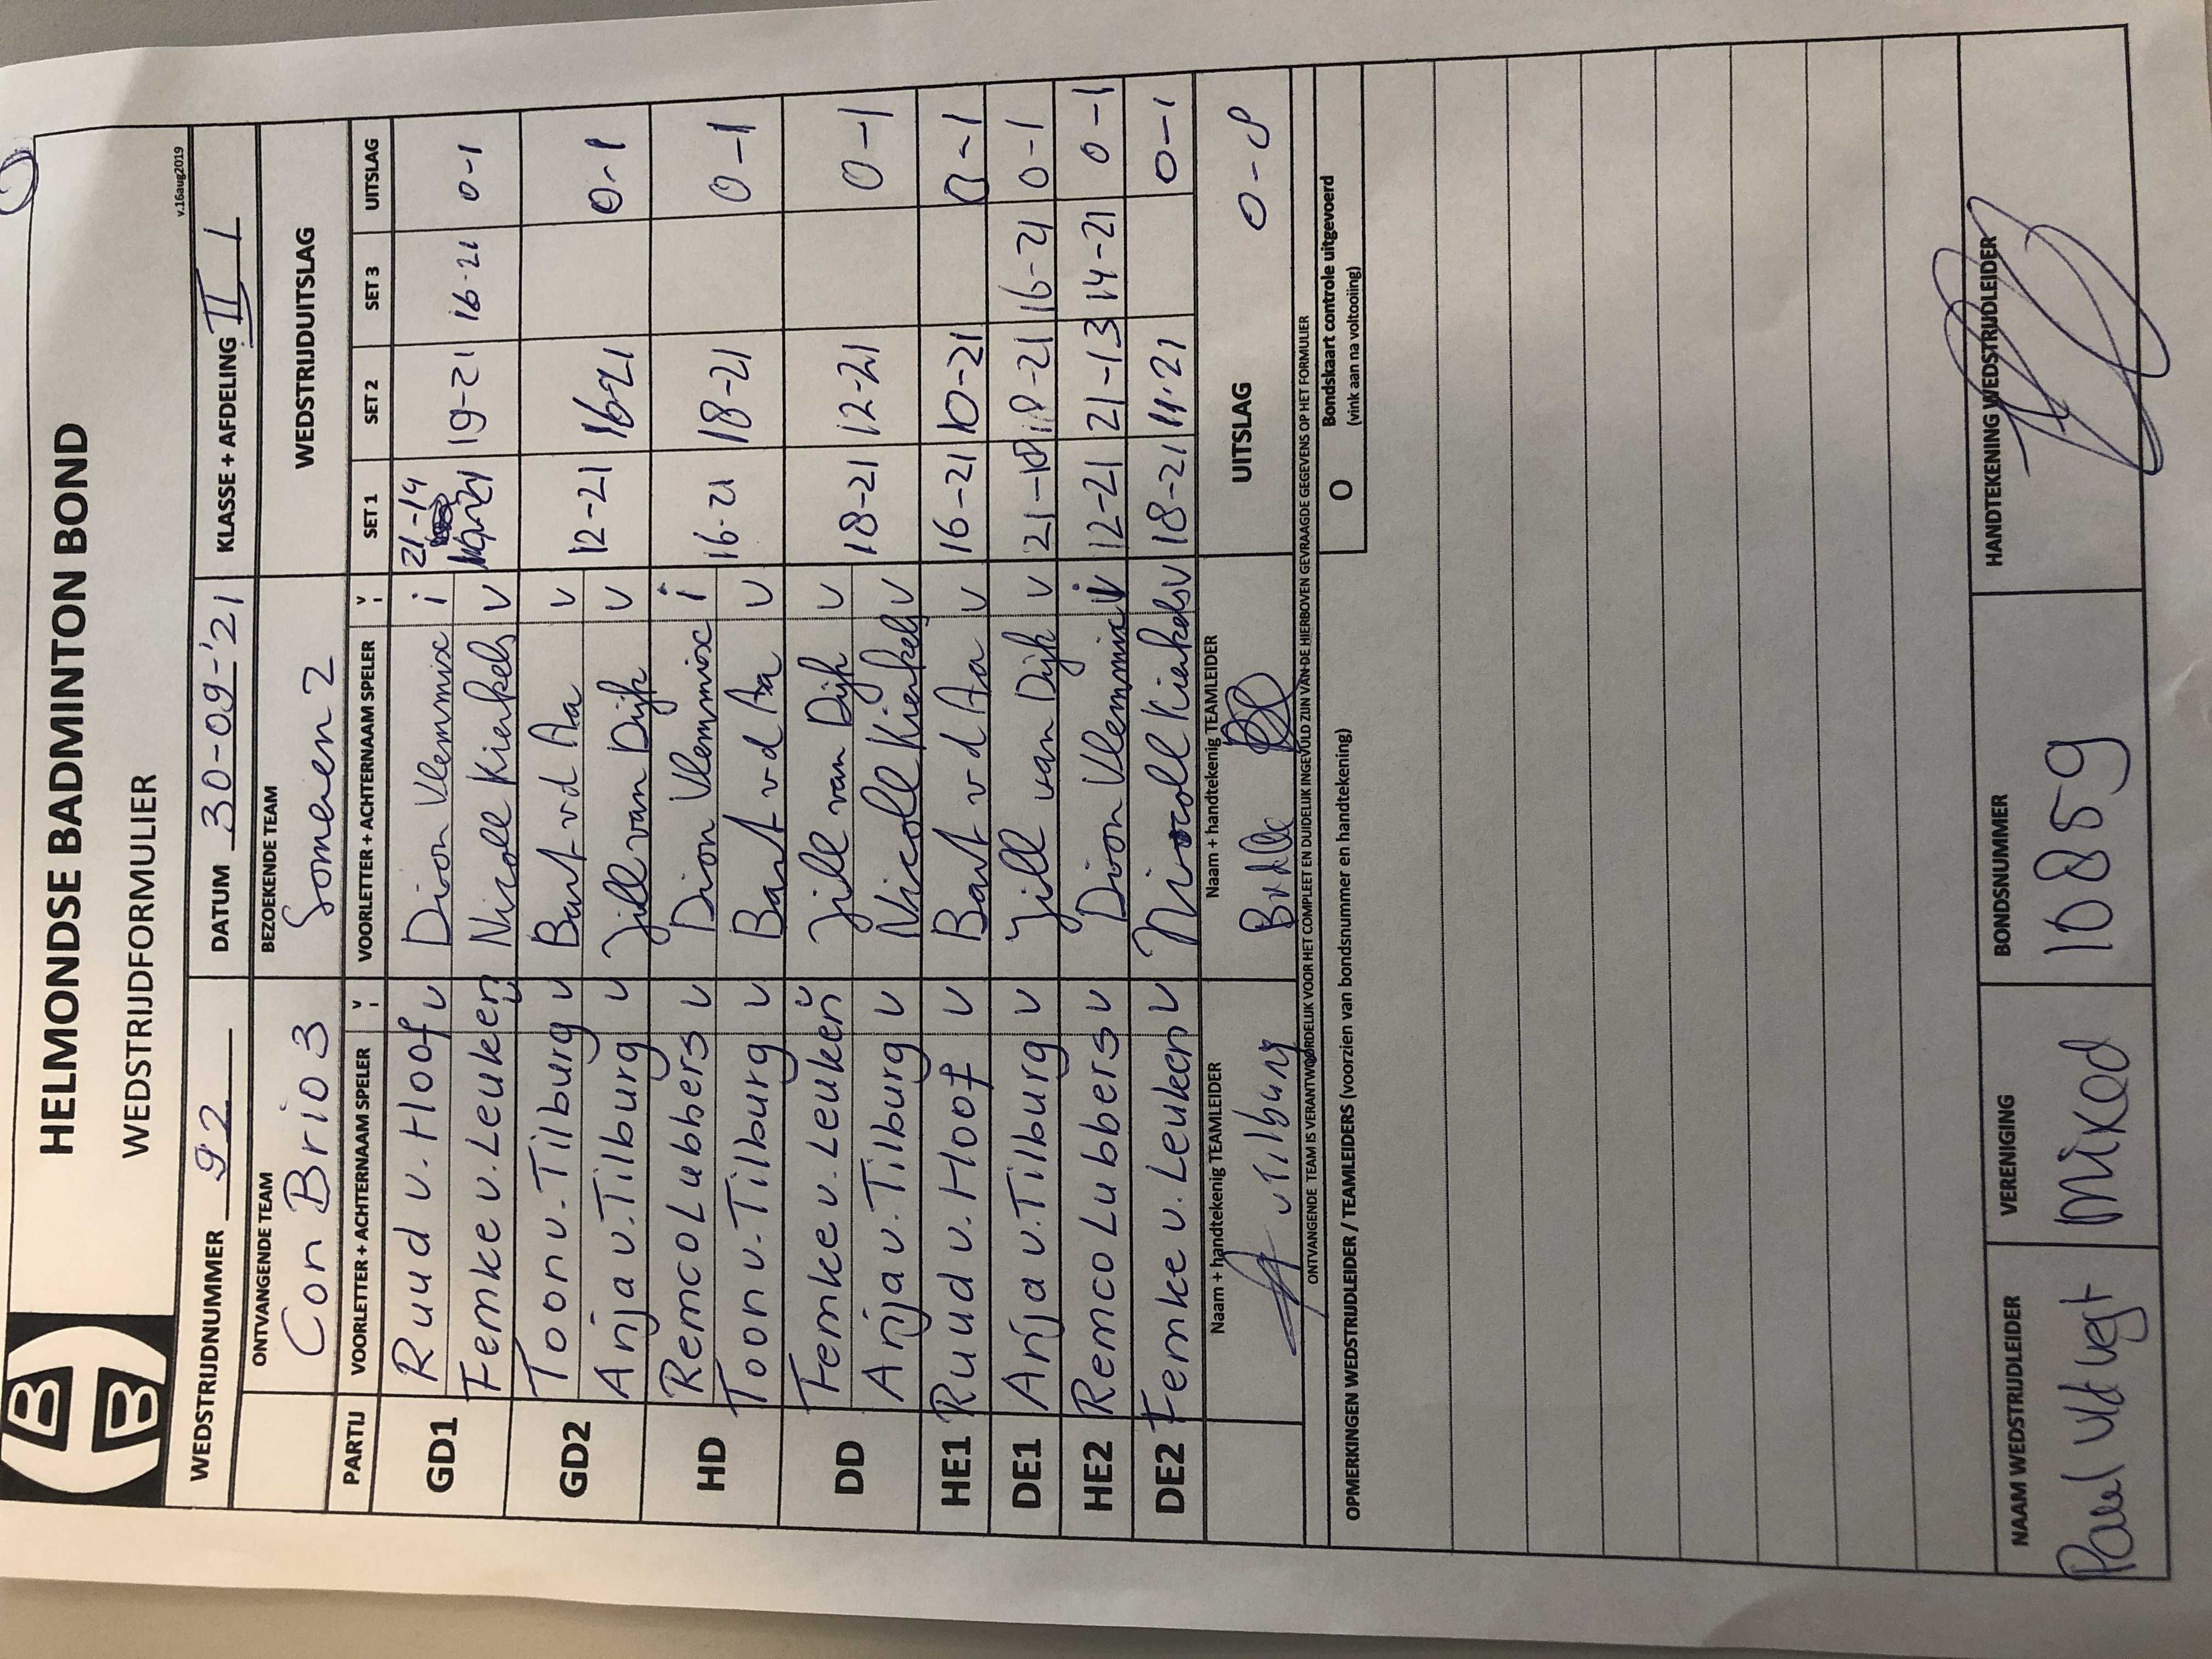 HELMONDSE BADMINTON BOND
WEDSTRIJDFORMULIER
v.16aug2019
WEDSTRIJDNUMMER 92 DATUM 30-09-'21 KLASSE + AFDELING II 1
ONTVANGENDE TEAM BEZOEKENDE TEAM WEDSTRIJDUITSLAG
Con Brio 3 Someren 2
PARTIJ VOORLETTER + ACHTERNAAM SPELER v i VOORLETTER + ACHTERNAAM SPELER v i SET 1 SET 2 SET 3 UITSLAG
GD1 Ruud v. Hoof v Dion Vlemmix i 21-14 19-21 16-21 0-1
Femke v. Leuken v Nicolle Kierkels v
GD2 Toon v. Tilburg v Bart vd Aa v 12-21 16-21 0-1
Anja v. Tilburg v Jill van Dijk v
HD Remco Lubbers v Dion Vlemmix i 16-21 18-21 0-1
Toon v. Tilburg v Bart vd Aa v
DD Femke v. Leuken v Jill van Dijk v 18-21 12-21 0-1
Anja v. Tilburg v Nicolle Kierkels v
HE1 Ruud v. Hoof v Bart vd Aa v 16-21 10-21 0-1
DE1 Anja v. Tilburg v Jill van Dijk v 21-18 18-21 16-21 0-1
HE2 Remco Lubbers v Dion Vlemmix i 12-21 21-13 14-21 0-1
DE2 Femke v. Leuken v Nicolle Kierkels v 18-21 11-21 0-1
Naam + handtekenig TEAMLEIDER Naam + handtekenig TEAMLEIDER UITSLAG 0-8
v Tilburg
ONTVANGENDE TEAM IS VERANTWOORDELIJK VOOR HET COMPLEET EN DUIDELIJK INGEVULD ZIJN VAN DE HIERBOVEN GEVRAAGDE GEGEVENS OP HET FORMULIER
OPMERKINGEN WEDSTRIJDLEIDER / TEAMLEIDERS (voorzien van bondsnummer en handtekening) O Bondskaart controle uitgevoerd
(vink aan na voltooiing)
NAAM WEDSTRIJDLEIDER VERENIGING BONDSNUMMER HANDTEKENING WEDSTRIJDLEIDER
Paul vld Vegt Mixed 10859